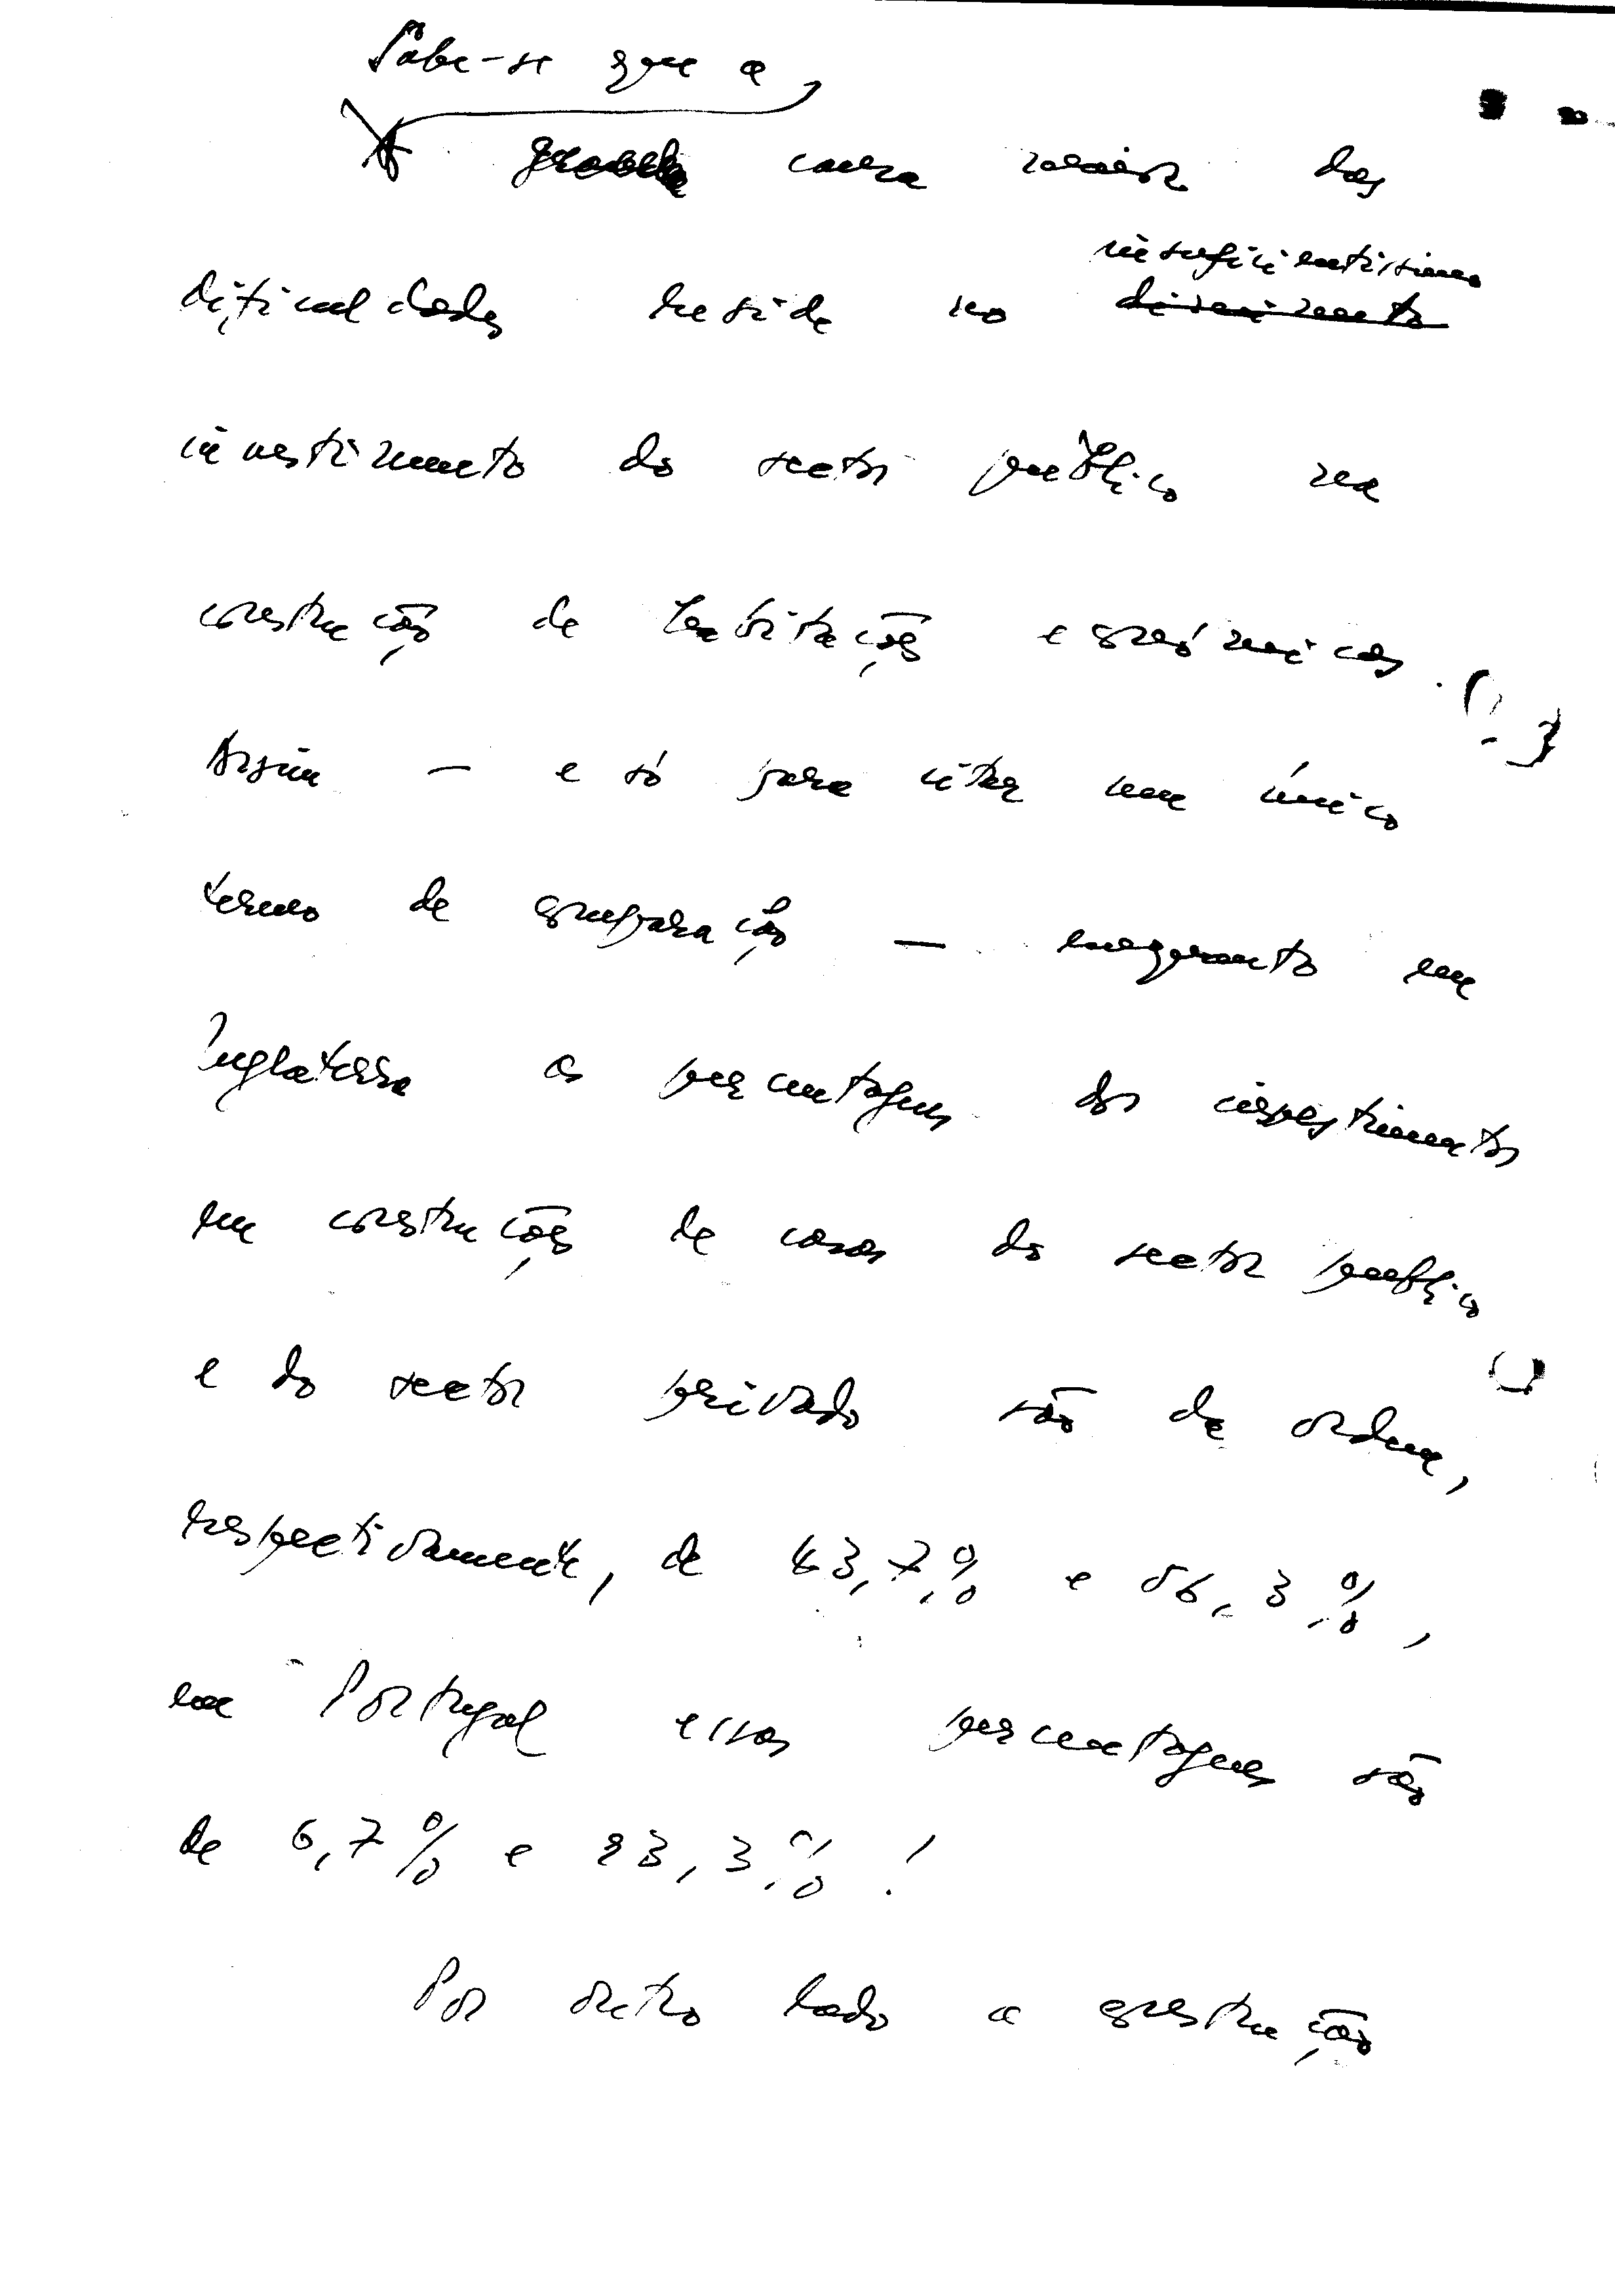 Sabe-se que a
grande causa maior das
insuficientíssimo
dificuldades reside no diminuto
investimento do sector público na
construção de habitações económicas.
Assim — e só para citar um único
termo de comparação — enquanto em
Inglaterra as percentagens dos investimentos
em construções de casas do sector público
e do sector privado são da ordem,
respectivamente, de 43,7% e 56,3%,
em Portugal essas percentagens são
de 6,7% e 93,3%!
Por outro lado a construção